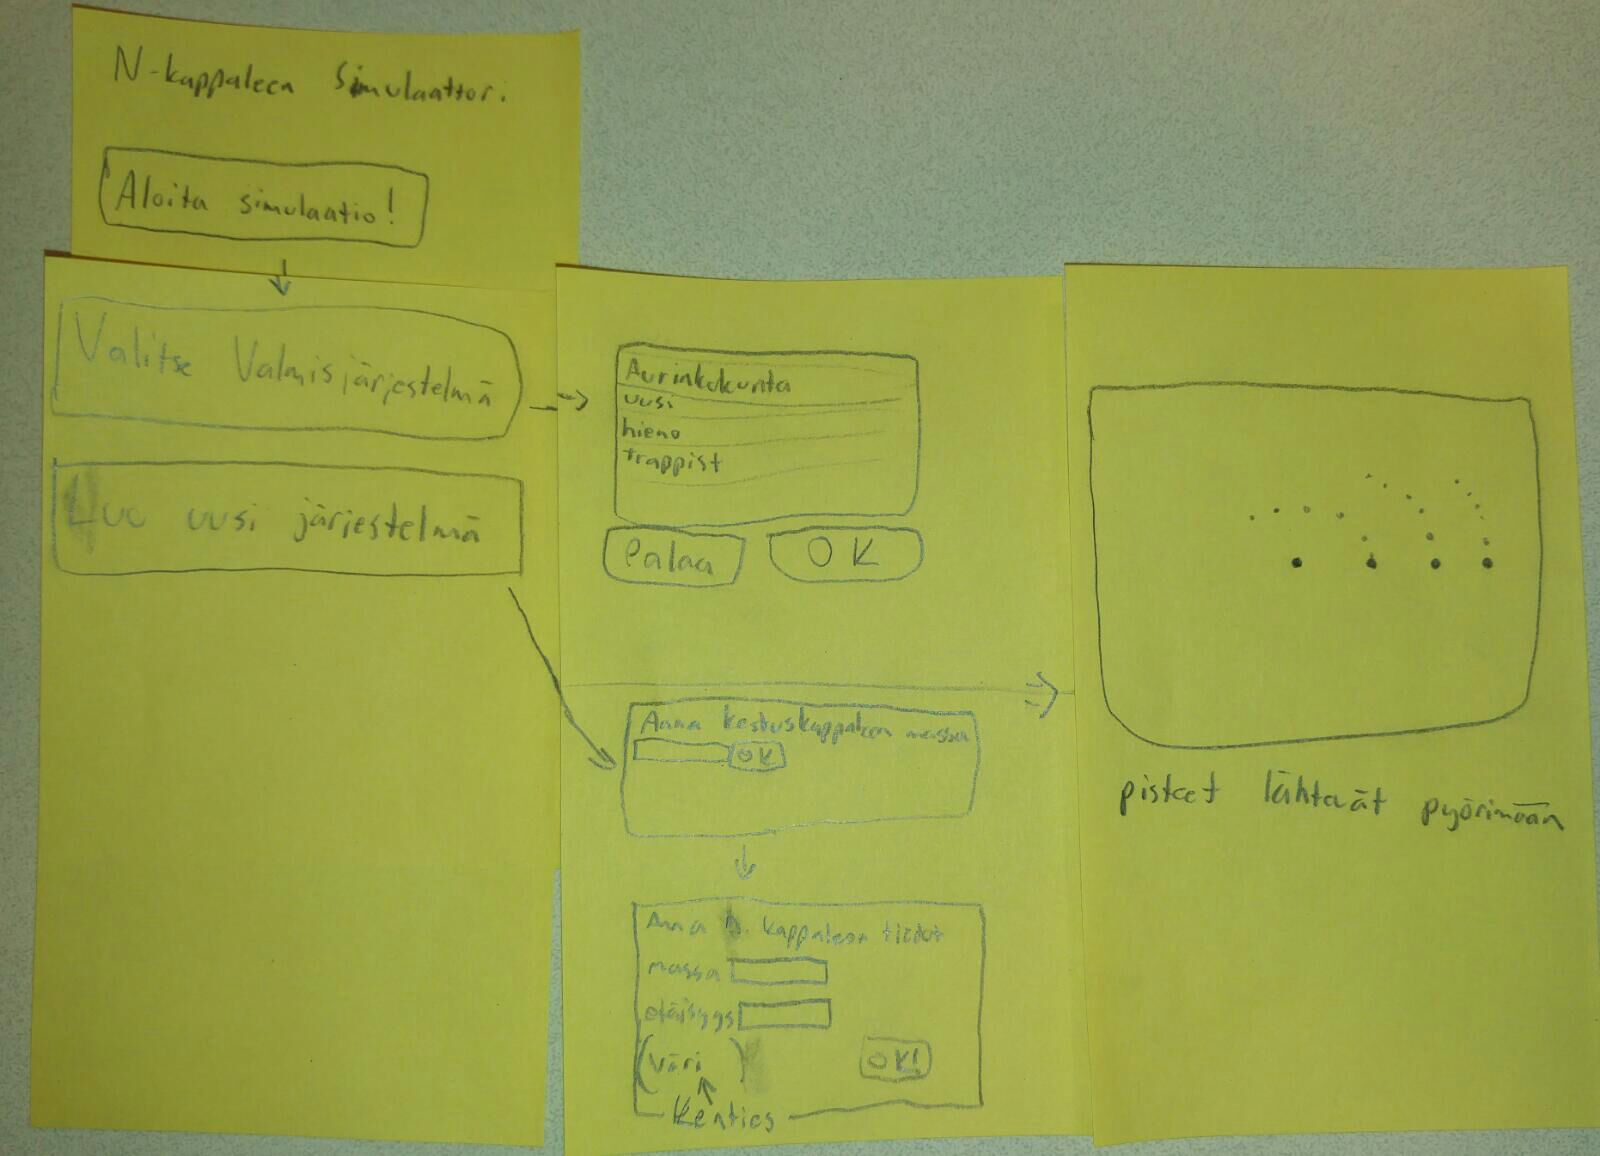 N-kappaleen simulaattori
Aloita simulaatio!
Valitse Valmisjärjestelmä
Luo uusi järjestelmä
Aurinkokunta
uusi
hieno
trappist
Palaa
OK
Anna keskuskappaleen massa
OK
Anna n. kappaleen tiedot
massa
etäisyys
(väri)
OK!
Kenties
pisteet lähtevät pyörimään